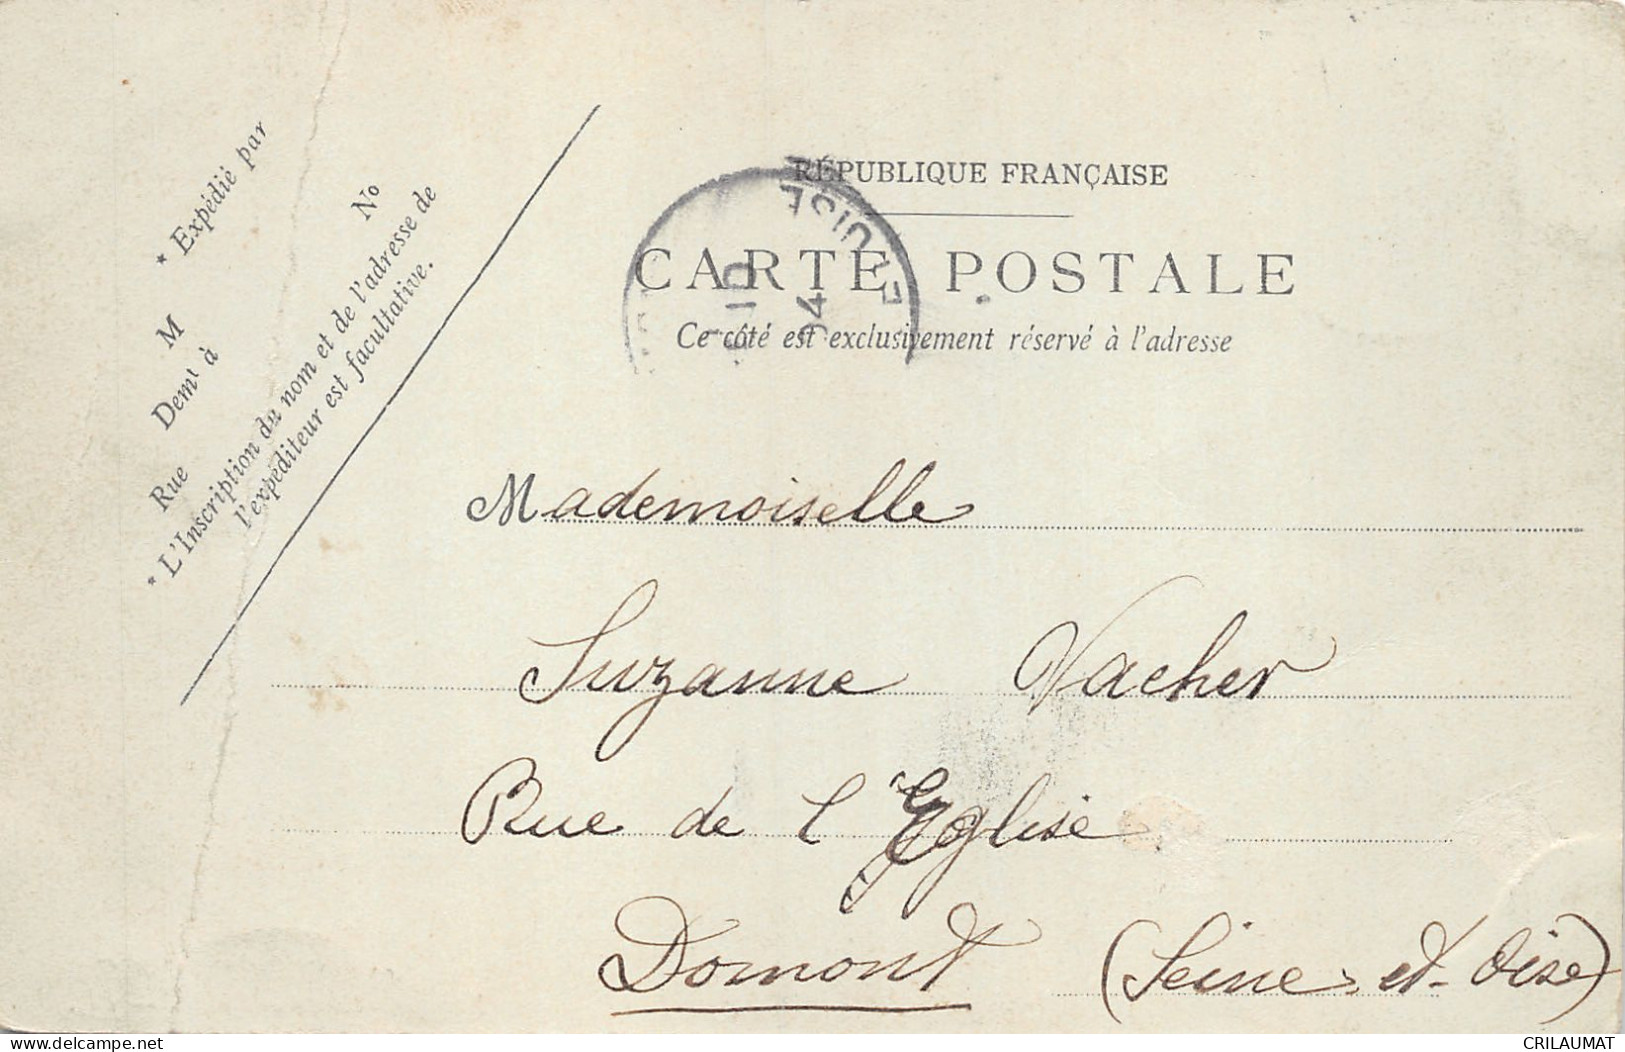 * Expédié par
M
Nº
Demt à
Rue
* L'Inscription du nom et de l'adresse de
l'expéditeur est facultative.
RÉPUBLIQUE FRANÇAISE
CARTE POSTALE
Ce côté est exclusivement réservé à l'adresse
ET-OISE
04
Mademoiselle
Suzanne Vacher
Rue de l'Eglise
Domont (Seine-et-Oise)
www.delcampe.net
CRILAUMAT